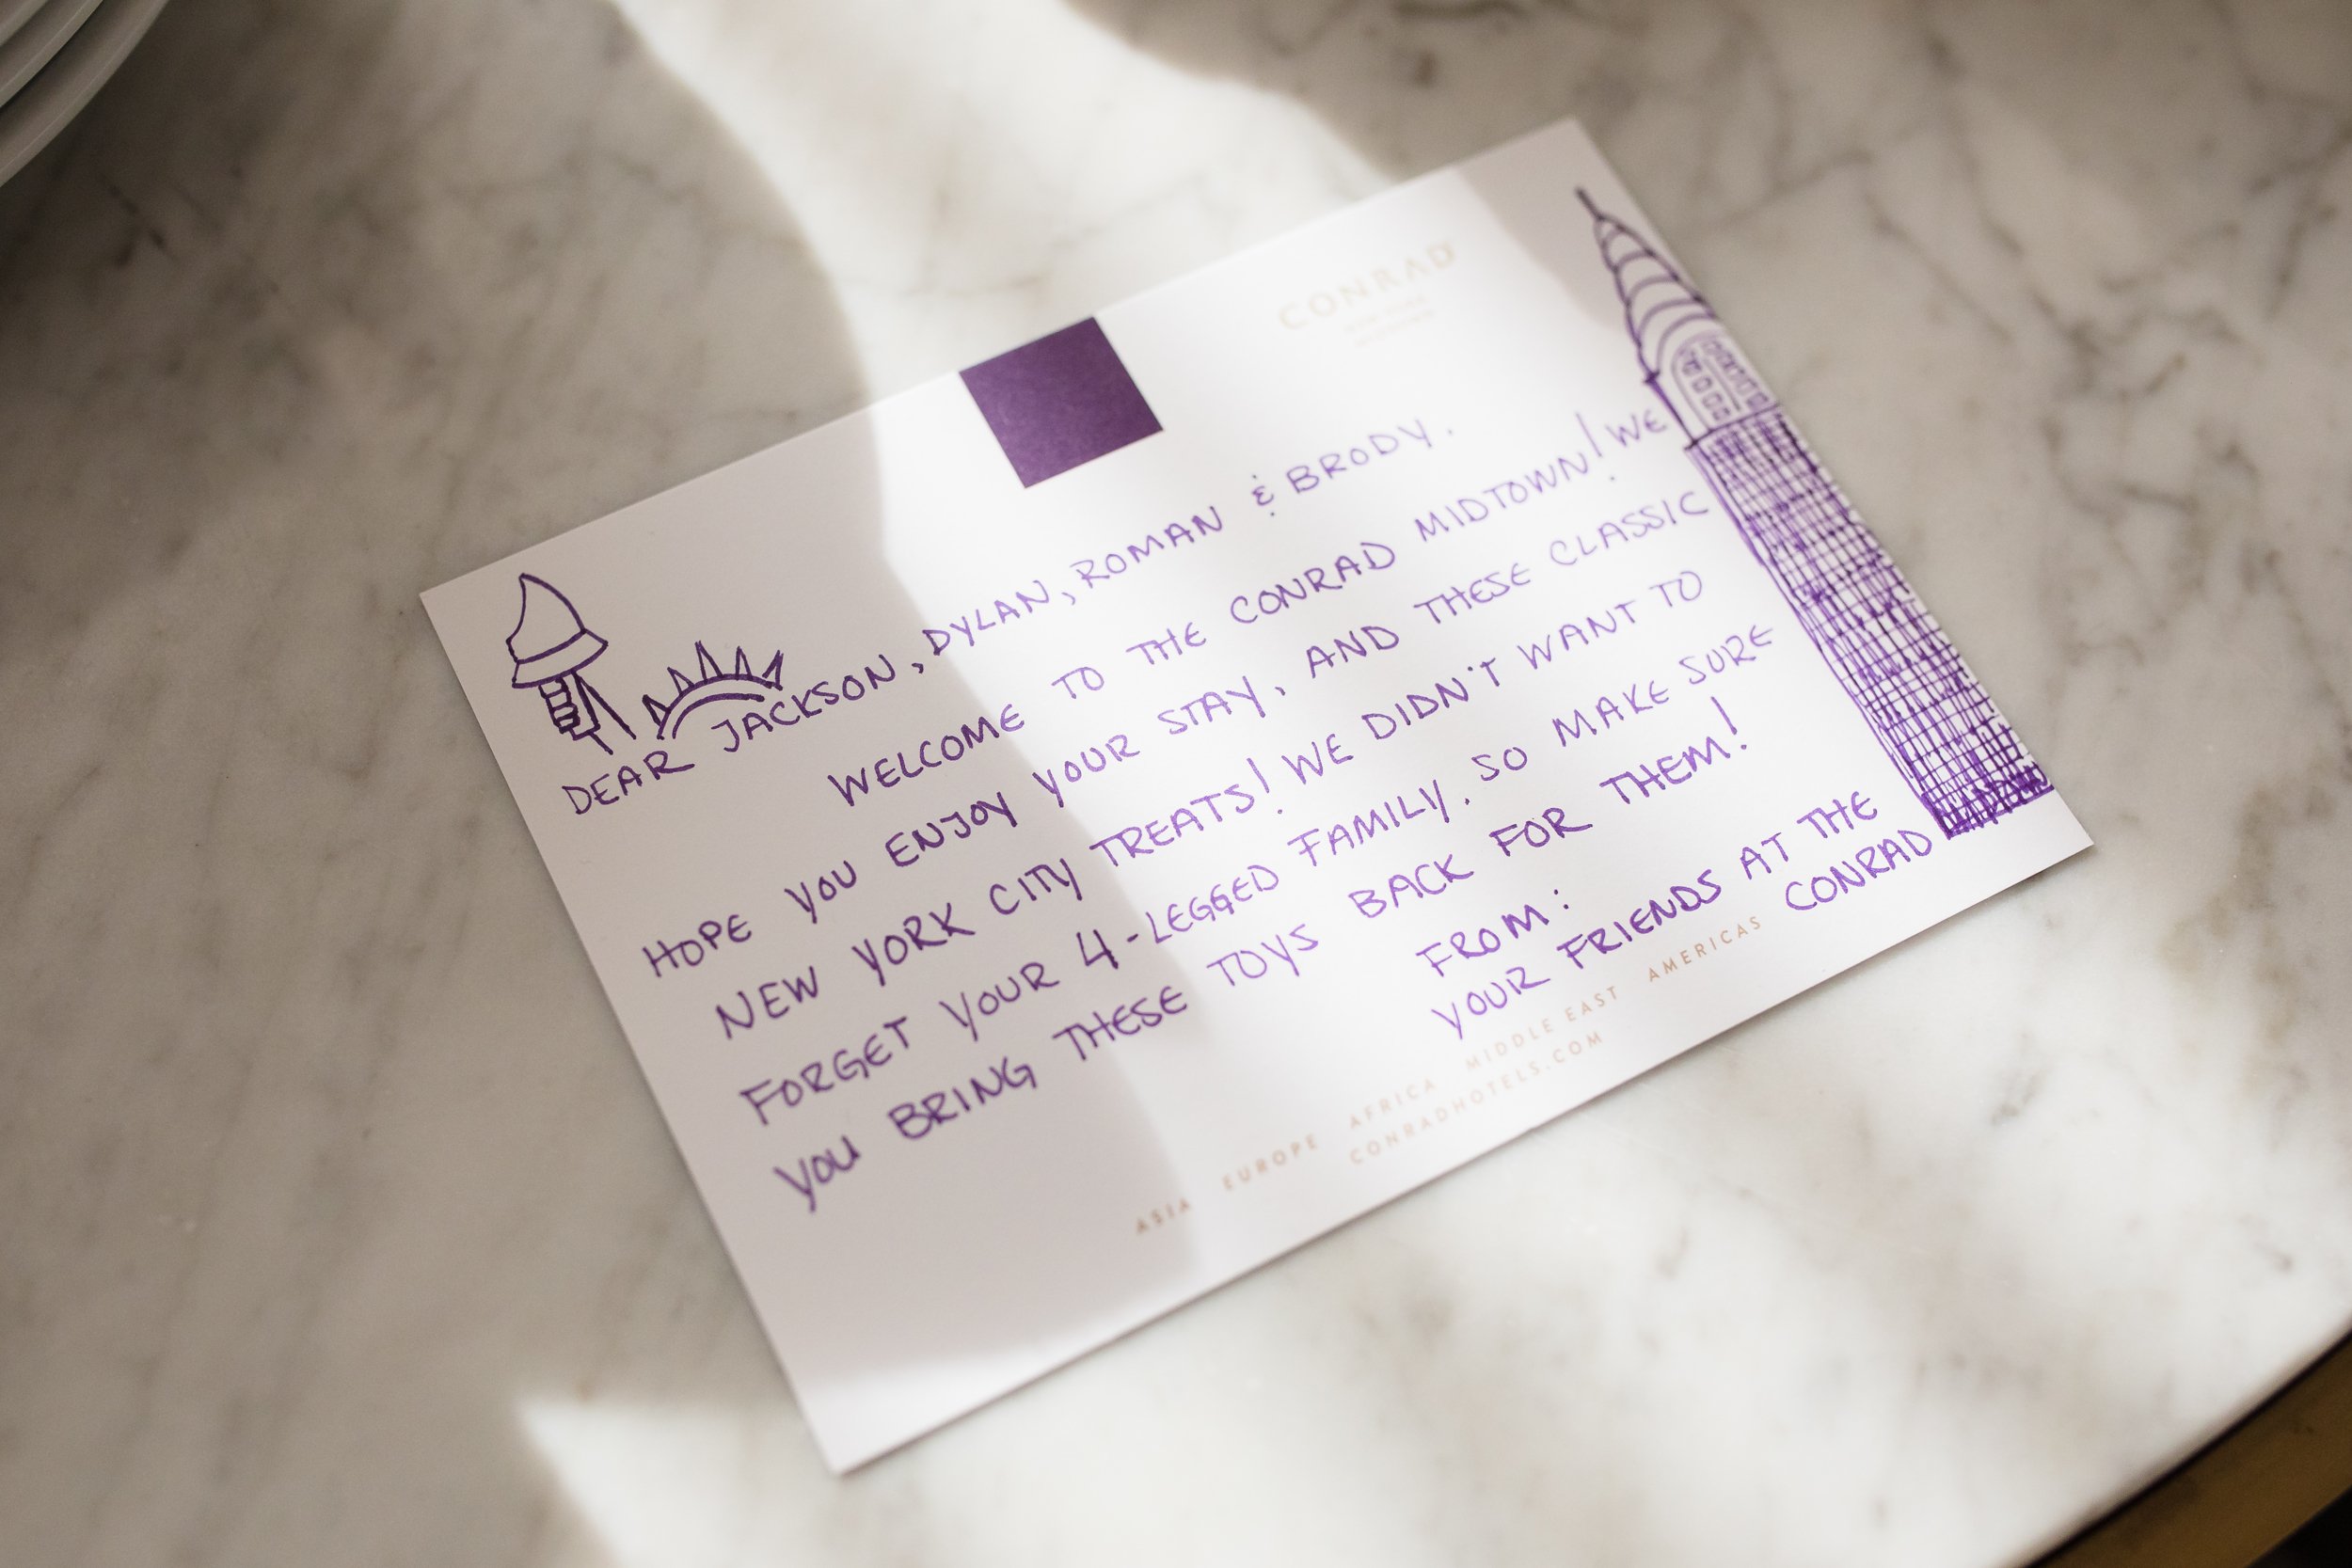 CONRAD
DEAR JACKSON, DYLAN, ROMAN & BRODY.
WELCOME TO THE CONRAD MIDTOWN! WE
HOPE YOU ENJOY YOUR STAY, AND THESE CLASSIC
NEW YORK CITY TREATS! WE DIDN'T WANT TO
FORGET YOUR 4-LEGGED FAMILY. SO MAKE SURE
YOU BRING THESE TOYS BACK FOR THEM!
FROM:
YOUR FRIENDS AT THE
CONRAD
ASIA EUROPE AFRICA MIDDLE EAST AMERICAS
CONRADHOTELS.COM